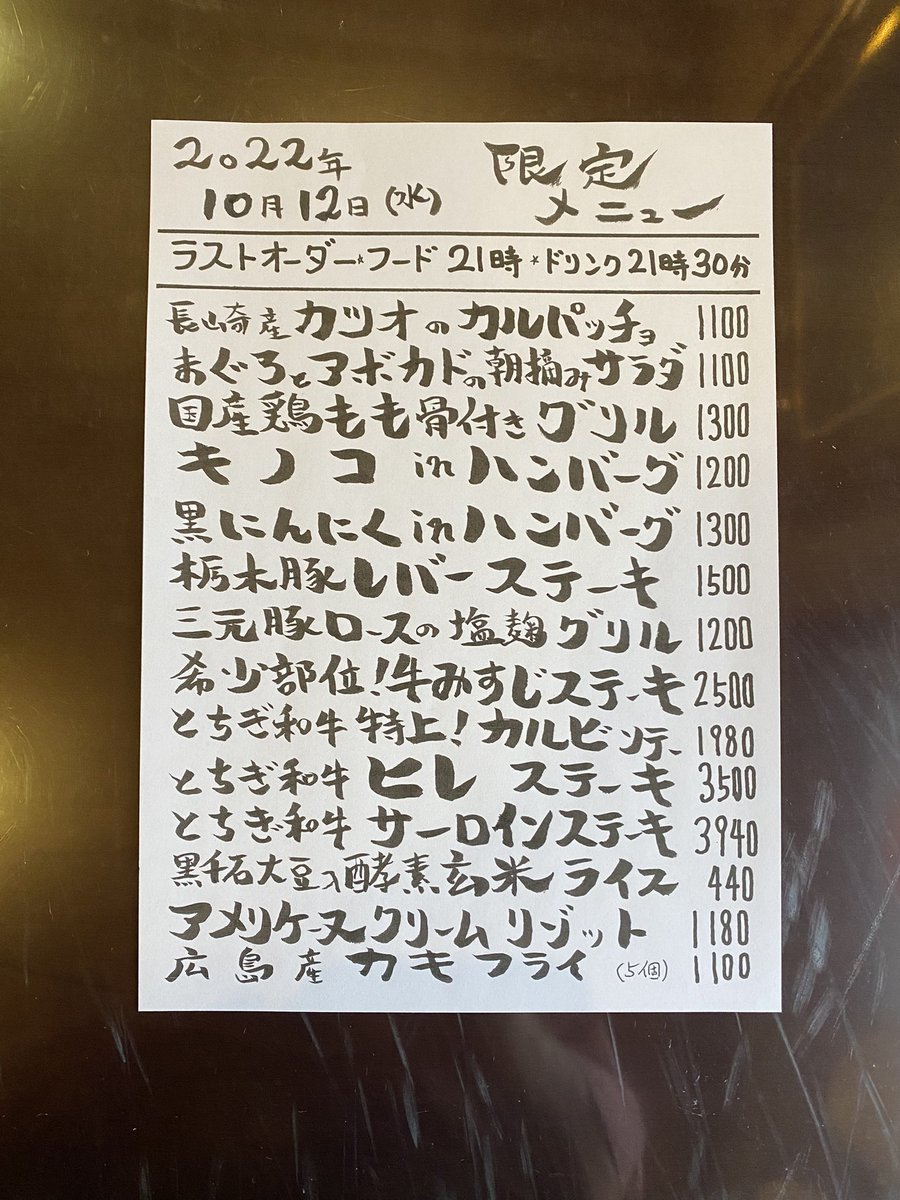 2022年 限定
10月12日(水) メニュー
ラストオーダー*フード 21時 * ドリンク21時30分
長崎産 カツオのカルパッチョ 1100
まぐろとアボカドの朝摘みサラダ 1100
国産鶏もも骨付きグリル 1300
キノコ in ハンバーグ 1200
黒にんにく in ハンバーグ 1300
栃木豚レバーステーキ 1500
三元豚ロースの塩麹グリル 1200
希少部位!牛みすじステーキ 2500
とちぎ和牛 特上!カルビソテー 1980
とちぎ和牛 ヒレ ステーキ 3500
とちぎ和牛 サーロインステーキ 3940
黒千石大豆入酵素玄米ライス 440
アメリケーヌクリームリゾット 1180
広島産 カキフライ (5個) 1100